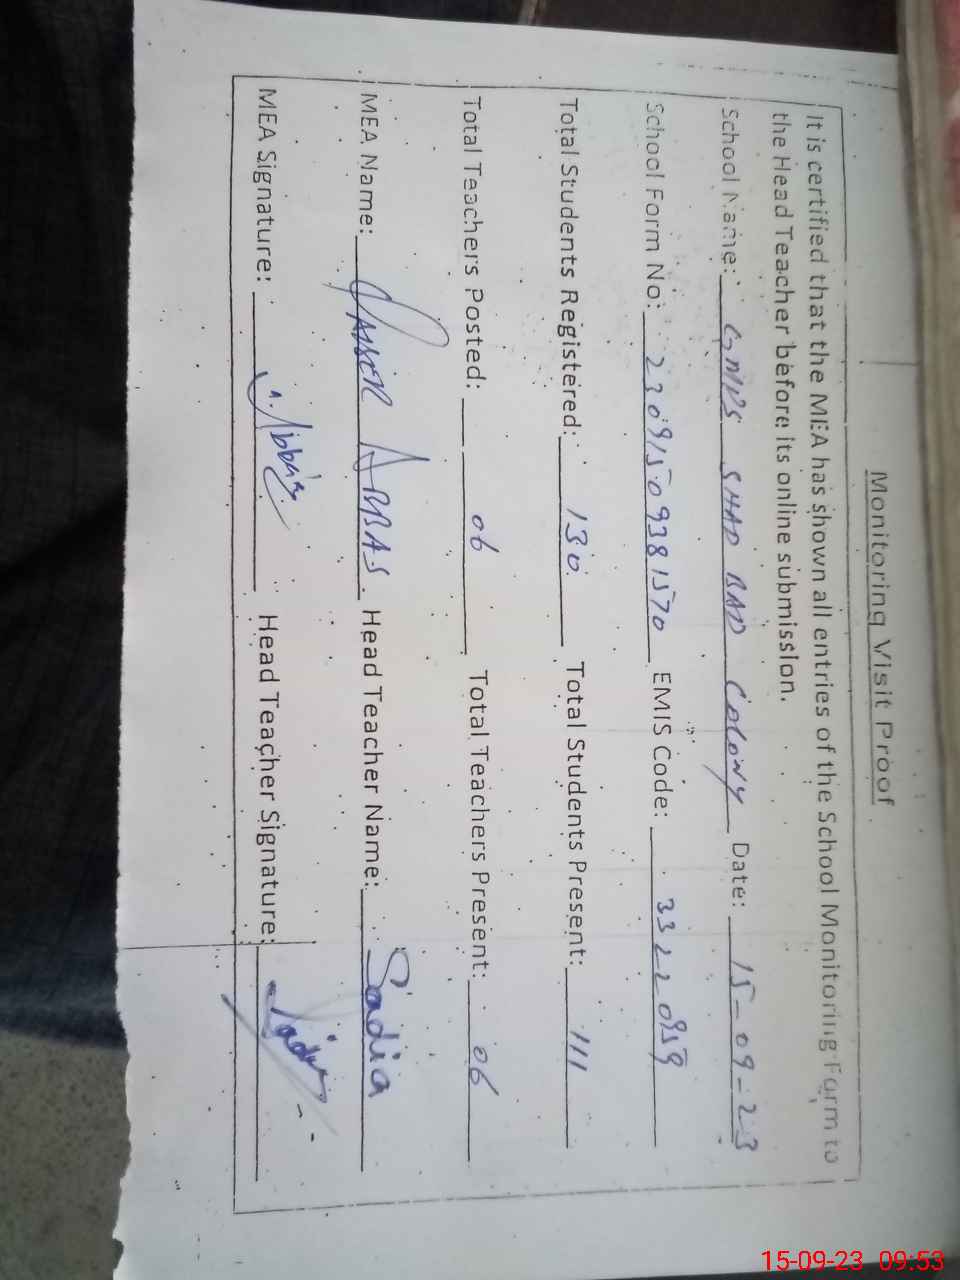 Monitoring Visit Proof
It is certified that the MEA has shown all entries of the School Monitoring Form to
the Head Teacher before its online submission.
School Name: GMPS SHAD BAD COLONY Date: 15-09-23
School Form No: 23091509381570 EMIS Code: 33220959
Total Students Registered: 130 Total Students Present: 111
Total Teachers Posted: 06 Total Teachers Present: 06
MEA Name: YASSER ABBAS. Head Teacher Name: Sadia
MEA Signature: Head Teacher Signature:
15-09-23 09:53